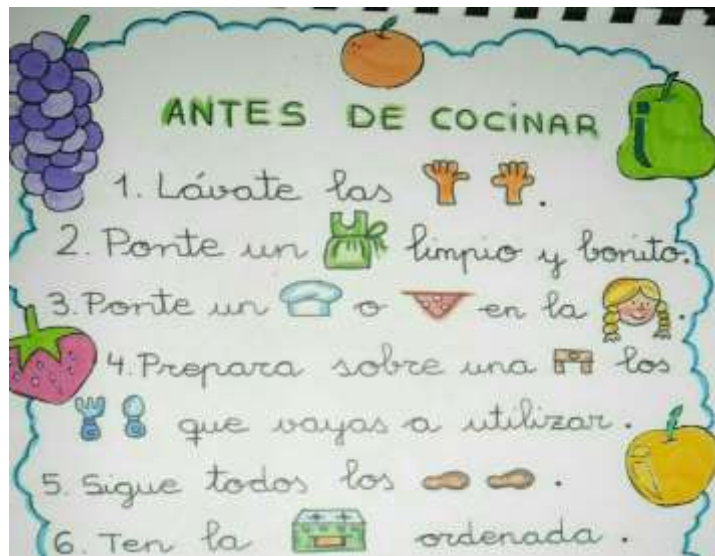 ANTES DE COCINAR
1. Lávate las .
2. Ponte un limpio y bonito.
3. Ponte un o en la .
4. Prepara sobre una los
que vayas a utilizar.
5. Sigue todos los .
6. Ten la ordenada.